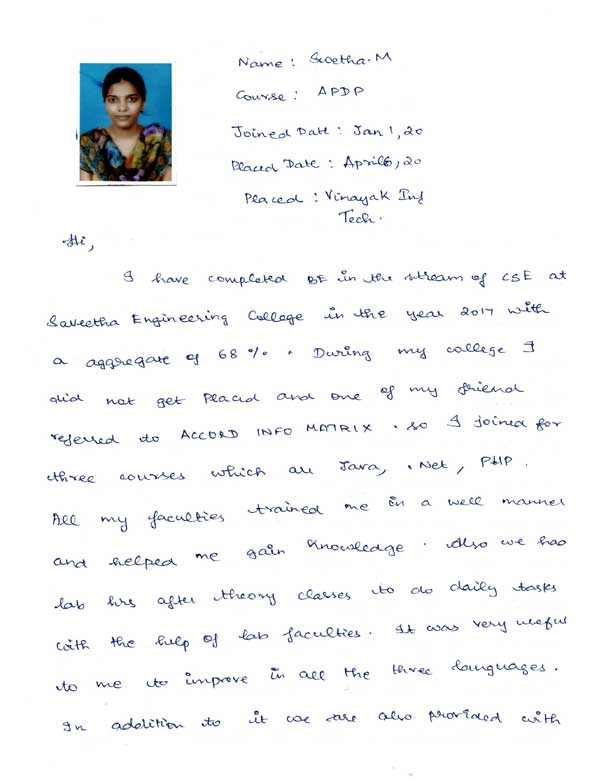 Name : Swetha.M
Course : APDP
Joined Date : Jan 1, 20
Placed Date : April 6, 20
Placed : Vinayak Inf
Tech.
Hi,
I have completed BE in the stream of CSE at
Saveetha Engineering College in the year 2017 with
a aggregate of 68 % . During my college I
did not get placed and one of my friend
referred to ACCORD INFO MATRIX . So I joined for
three courses which are Java, .Net, PHP .
All my faculties trained me in a well manner
and helped me gain knowledge . Also we had
lab hrs after theory classes to do daily tasks
with the help of lab faculties . It was very useful
to me to improve in all the three languages .
In addition to it we are also provided with